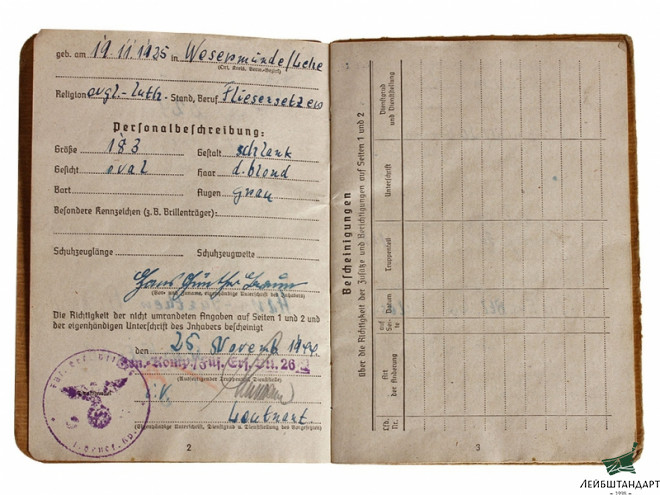 geb. am 19.11.1925 in Wesermünde/Lehe
(Ort, Kreis, Verw.-Bezirk)
Religion evgl.-luth. Stand, Beruf Fliesensetzer
Personalbeschreibung:
Größe 183 Gestalt schlank
Gesicht oval Haar d. blond
Bart Augen grau
Besondere Kennzeichen (z. B. Brillenträger):
Schuhzeuglänge Schuhzeugweite
Hans Günther
(Vor- und Zuname, eigenhändige Unterschrift des Inhabers)
Die Richtigkeit der nicht umrandeten Angaben auf Seiten 1 und 2 und
der eigenhändigen Unterschrift des Inhabers bescheinigt
den 25. Novemb. 1944
Ers. 26
i.V.
Leutnant
(Eigenhändige Unterschrift, Dienstgrad u. Dienststellung des Vorgesetzten)
2
Bescheinigungen
über die Richtigkeit der Zusätze und Berichtigungen auf Seiten 1 und 2
Dienstgrad und Dienststellung
Unterschrift
Truppenteil
Datum
auf Seite
Art der Änderung
Lfd. Nr.
3
ЛЕЙБШТАНДАРТ